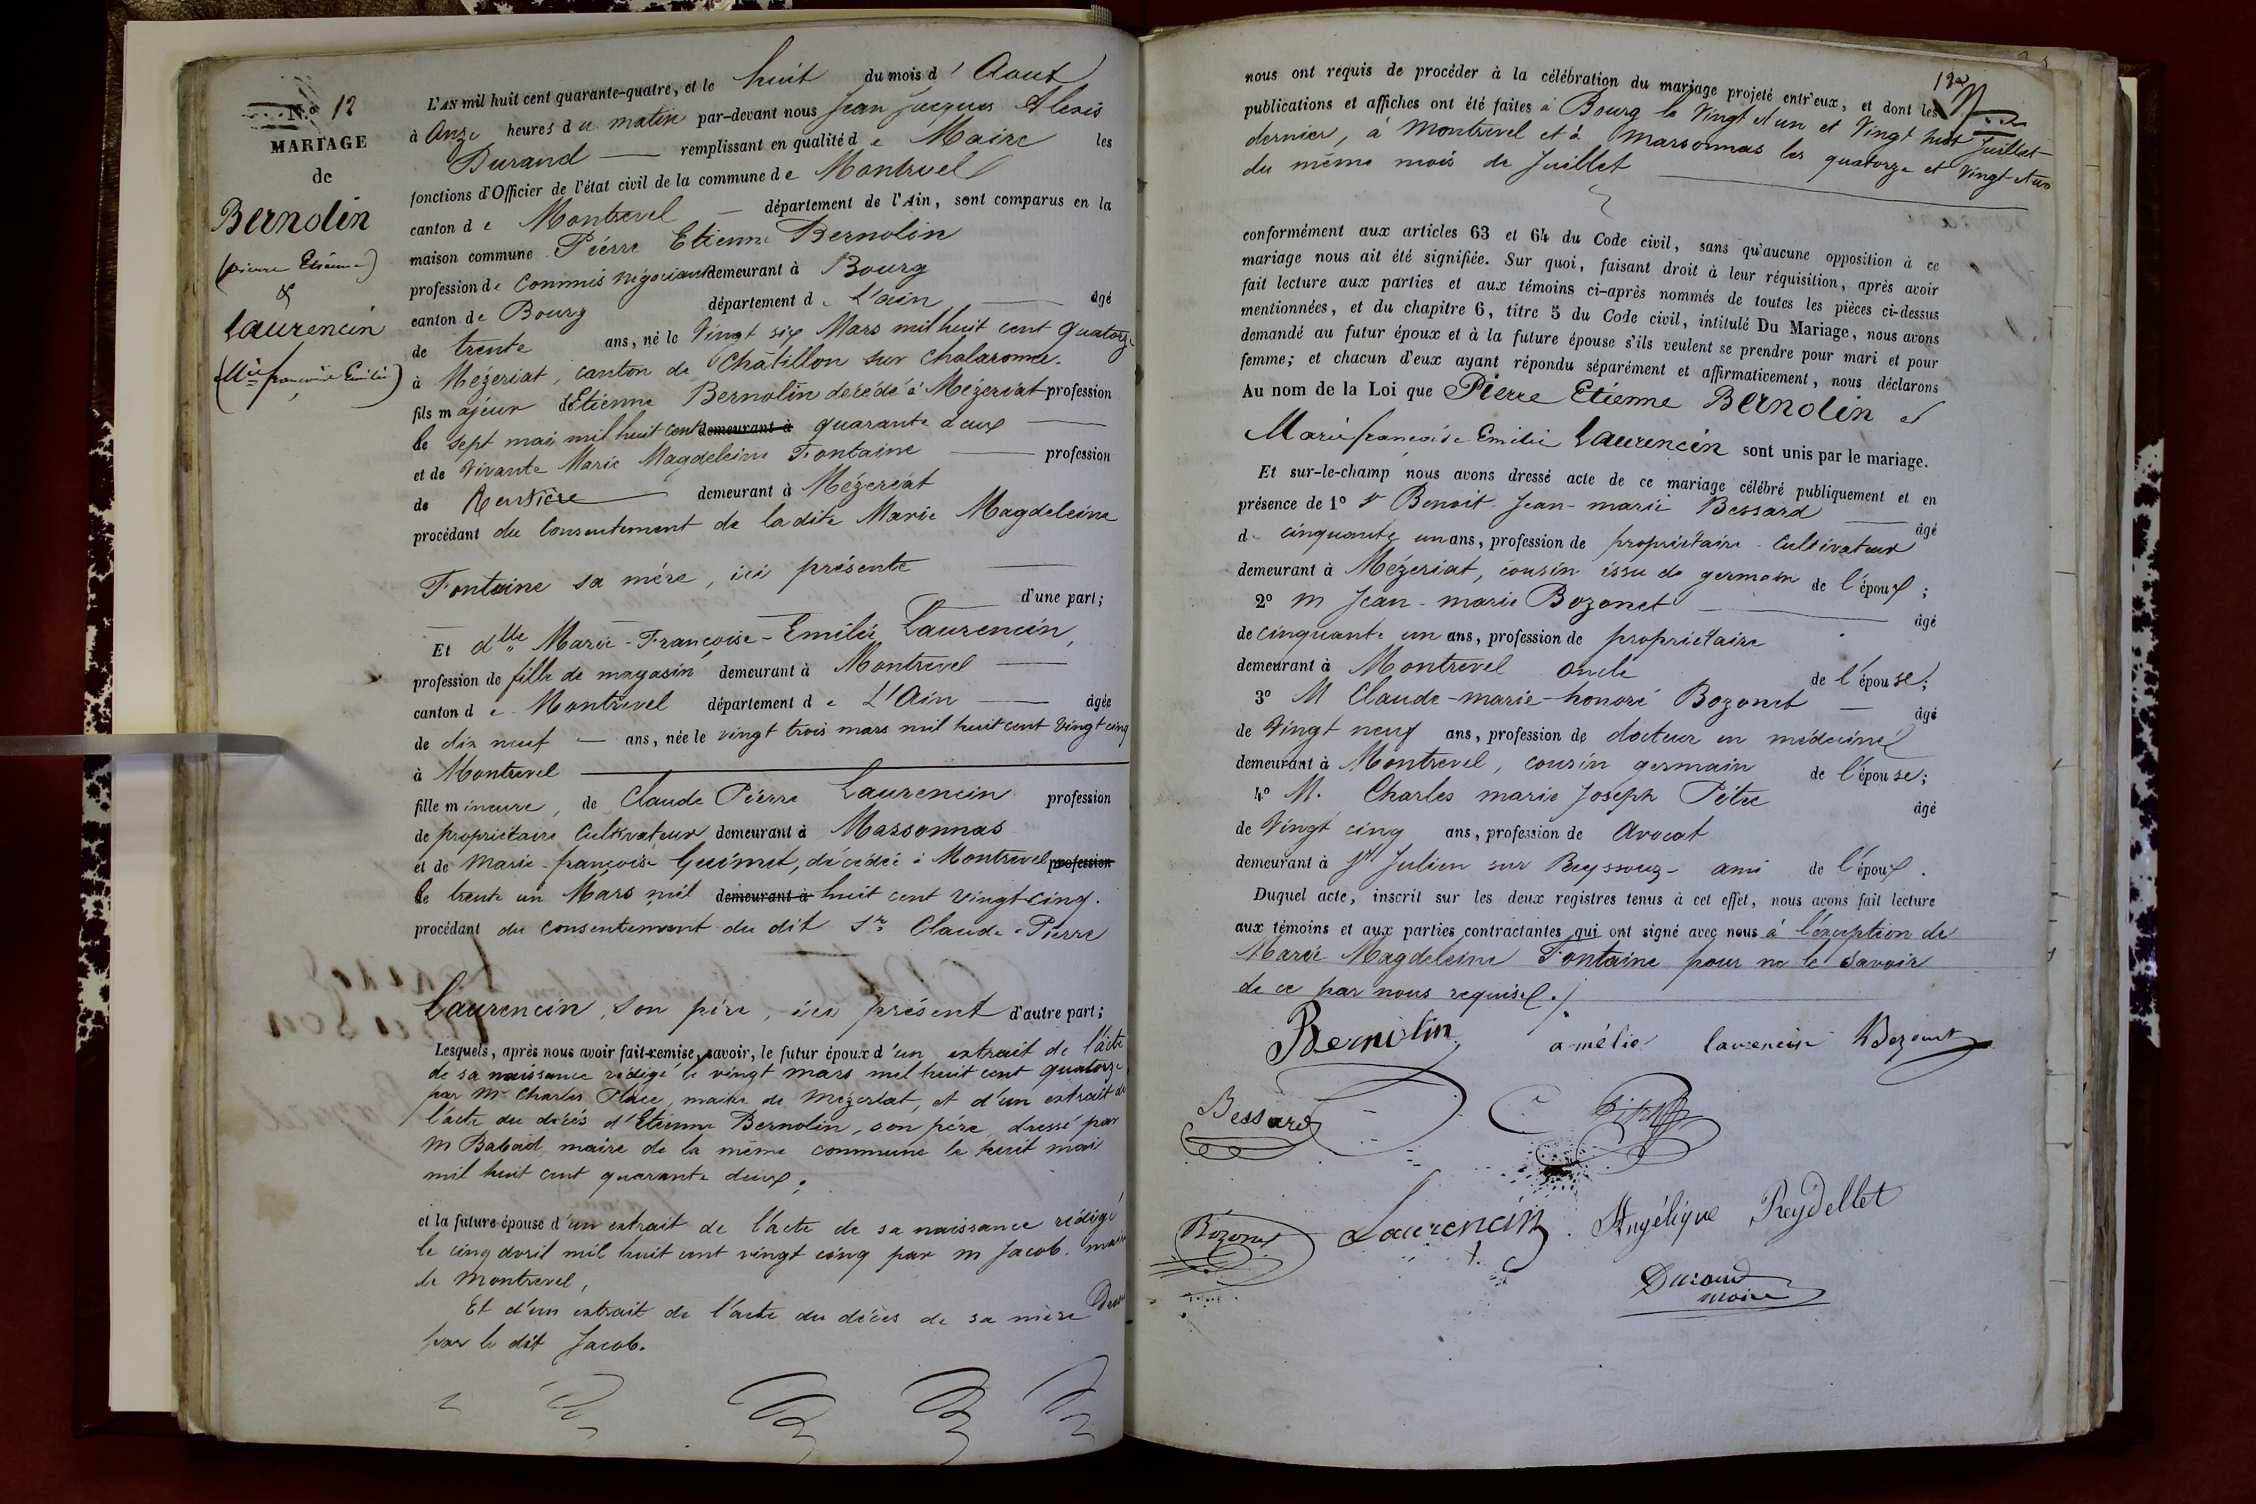 N.º 12
MARIAGE
de
Bernolin
(pierre Etienne)
&
Laurencin
(Mie françoise Emilie)
L'AN mil huit cent quarante-quatre, et le huit du mois d'Aout
à Onze heures du matin par-devant nous Jean Jacques Alexis
Durand remplissant en qualité de Maire les
fonctions d'Officier de l'état civil de la commune de Montrevel
canton de Montrevel département de l'Ain, sont comparus en la
maison commune Pierre Etienne Bernolin
profession de Commis négociant demeurant à Bourg
canton de Bourg département de L'ain âgé
de trente ans, né le Vingt six Mars mil huit cent quatorze
à Mézeriat, canton de Châtillon sur Chalaronne.
fils majeur d'Etienne Bernolin décédé à Mézeriat profession
le sept mai mil huit cent demeurant à quarante deux
et de Vivante Marie Magdeleine Fontaine profession
de Rentière demeurant à Mézeriat
procédant du Consentement de ladite Marie Magdeleine
Fontaine sa mère, ici présente
d'une part;
Et dlle Marie-Françoise-Emilie Laurencin,
profession de fille de magasin demeurant à Montrevel
canton de Montrevel département de L'Ain âgée
de dix neuf ans, née le vingt trois mars mil huit cent Vingt cinq
à Montrevel
fille mineure, de Claude Pierre Laurencin profession
de propriétaire Cultivateur demeurant à Marsonnas
et de Marie-françoise Guimet, décédée à Montrevel profession
le trente un Mars mil demeurant à huit cent vingt-cinq.
procédant du Consentement du dit Sr Claude-Pierre
Laurencin, son père, ici présent d'autre part;
Lesquels, après nous avoir fait remise, savoir, le futur époux d'un extrait de l'acte
de sa naissance rédigé le vingt mars mil huit cent quatorze
par Mr Charles Place, maire de Mézeriat, et d'un extrait de
l'acte du décès d'Etienne Bernolin, son père, dressé par
M Babad, maire de la même commune le huit mai
mil huit cent quarante deux;
et la future épouse d'un extrait de l'acte de sa naissance rédigé
le cinq avril mil huit cent vingt cinq par M Jacob. maire
de Montrevel,
Et d'un extrait de l'acte du décès de sa mère
par le dit Jacob.
nous ont requis de procéder à la célébration du mariage projeté entr'eux, et dont les
publications et affiches ont été faites à Bourg le Vingt et un et Vingt huit Juillet
dernier, à Montrevel et à Marsonnas les quatorze et Vingt et un
du même mois de Juillet
conformément aux articles 63 et 64 du Code civil, sans qu'aucune opposition à ce
mariage nous ait été signifiée. Sur quoi, faisant droit à leur réquisition, après avoir
fait lecture aux parties et aux témoins ci-après nommés de toutes les pièces ci-dessus
mentionnées, et du chapitre 6, titre 5 du Code civil, intitulé Du Mariage, nous avons
demandé au futur époux et à la future épouse s'ils veulent se prendre pour mari et pour
femme; et chacun d'eux ayant répondu séparément et affirmativement, nous déclarons
Au nom de la Loi que Pierre Etienne Bernolin et
Marie françoise Emilie Laurencin sont unis par le mariage.
Et sur-le-champ nous avons dressé acte de ce mariage célébré publiquement et en
présence de 1º Sr Benoit Jean-marie Bessard âgé
de cinquante un ans, profession de propriétaire Cultivateur
demeurant à Mézeriat, cousin issu de germain de l'époux;
2º M Jean-marie Bozonet âgé
de cinquante un ans, profession de propriétaire
demeurant à Montrevel oncle de l'épouse;
3º M Claude-marie-honoré Bozonet âgé
de Vingt neuf ans, profession de docteur en médecine
demeurant à Montrevel, cousin germain de l'épouse;
4º M. Charles marie Joseph Pêtre âgé
de Vingt cinq ans, profession de Avocat
demeurant à St Julien sur Reyssouze ami de l'époux.
Duquel acte, inscrit sur les deux registres tenus à cet effet, nous avons fait lecture
aux témoins et aux parties contractantes qui ont signé avec nous à l'exception de
Marie Magdeleine Fontaine pour ne le savoir
de ce par nous requise./.
Bernolin amélie laurencin Bozonet
Bessard
Bozonet Laurencin Angélique Reydellet
Durand
maire